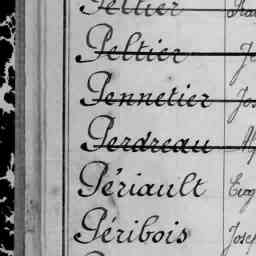 Peltier
Peltier Je
Pennetier Jos
Perdreau
Périault Eug
Péribois Josep